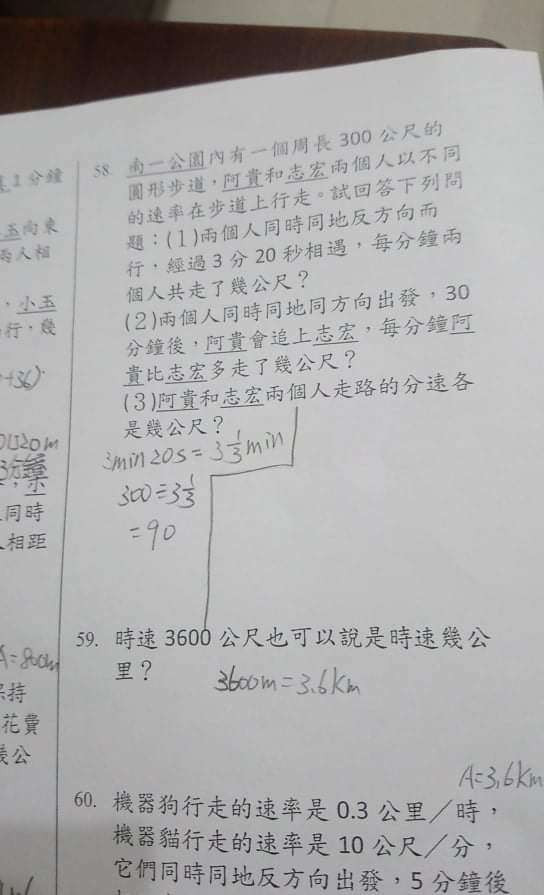 58. 南一公園內有一個周長 300 公尺的
圓形步道，阿貴和志宏兩個人以不同
的速率在步道上行走。試回答下列問
題：(1)兩個人同時同地反方向而
行，經過 3 分 20 秒相遇，每分鐘兩
個人共走了幾公尺？
(2)兩個人同時同地同方向出發，30
分鐘後，阿貴會追上志宏，每分鐘阿
貴比志宏多走了幾公尺？
(3)阿貴和志宏兩個人走路的分速各
是幾公尺？
3min20s=3 1/3 min
300÷3 1/3
=90
59. 時速 3600 公尺也可以說是時速幾公
里？
3600m=3.6Km
A=3.6Km
60. 機器狗行走的速率是 0.3 公里／時，
機器貓行走的速率是 10 公尺／分，
它們同時同地反方向出發，5 分鐘後
1 分鐘
玉向東
兩人相
，小玉
行，幾
+36)
同時
相距
A=800m
保持
花費
幾公